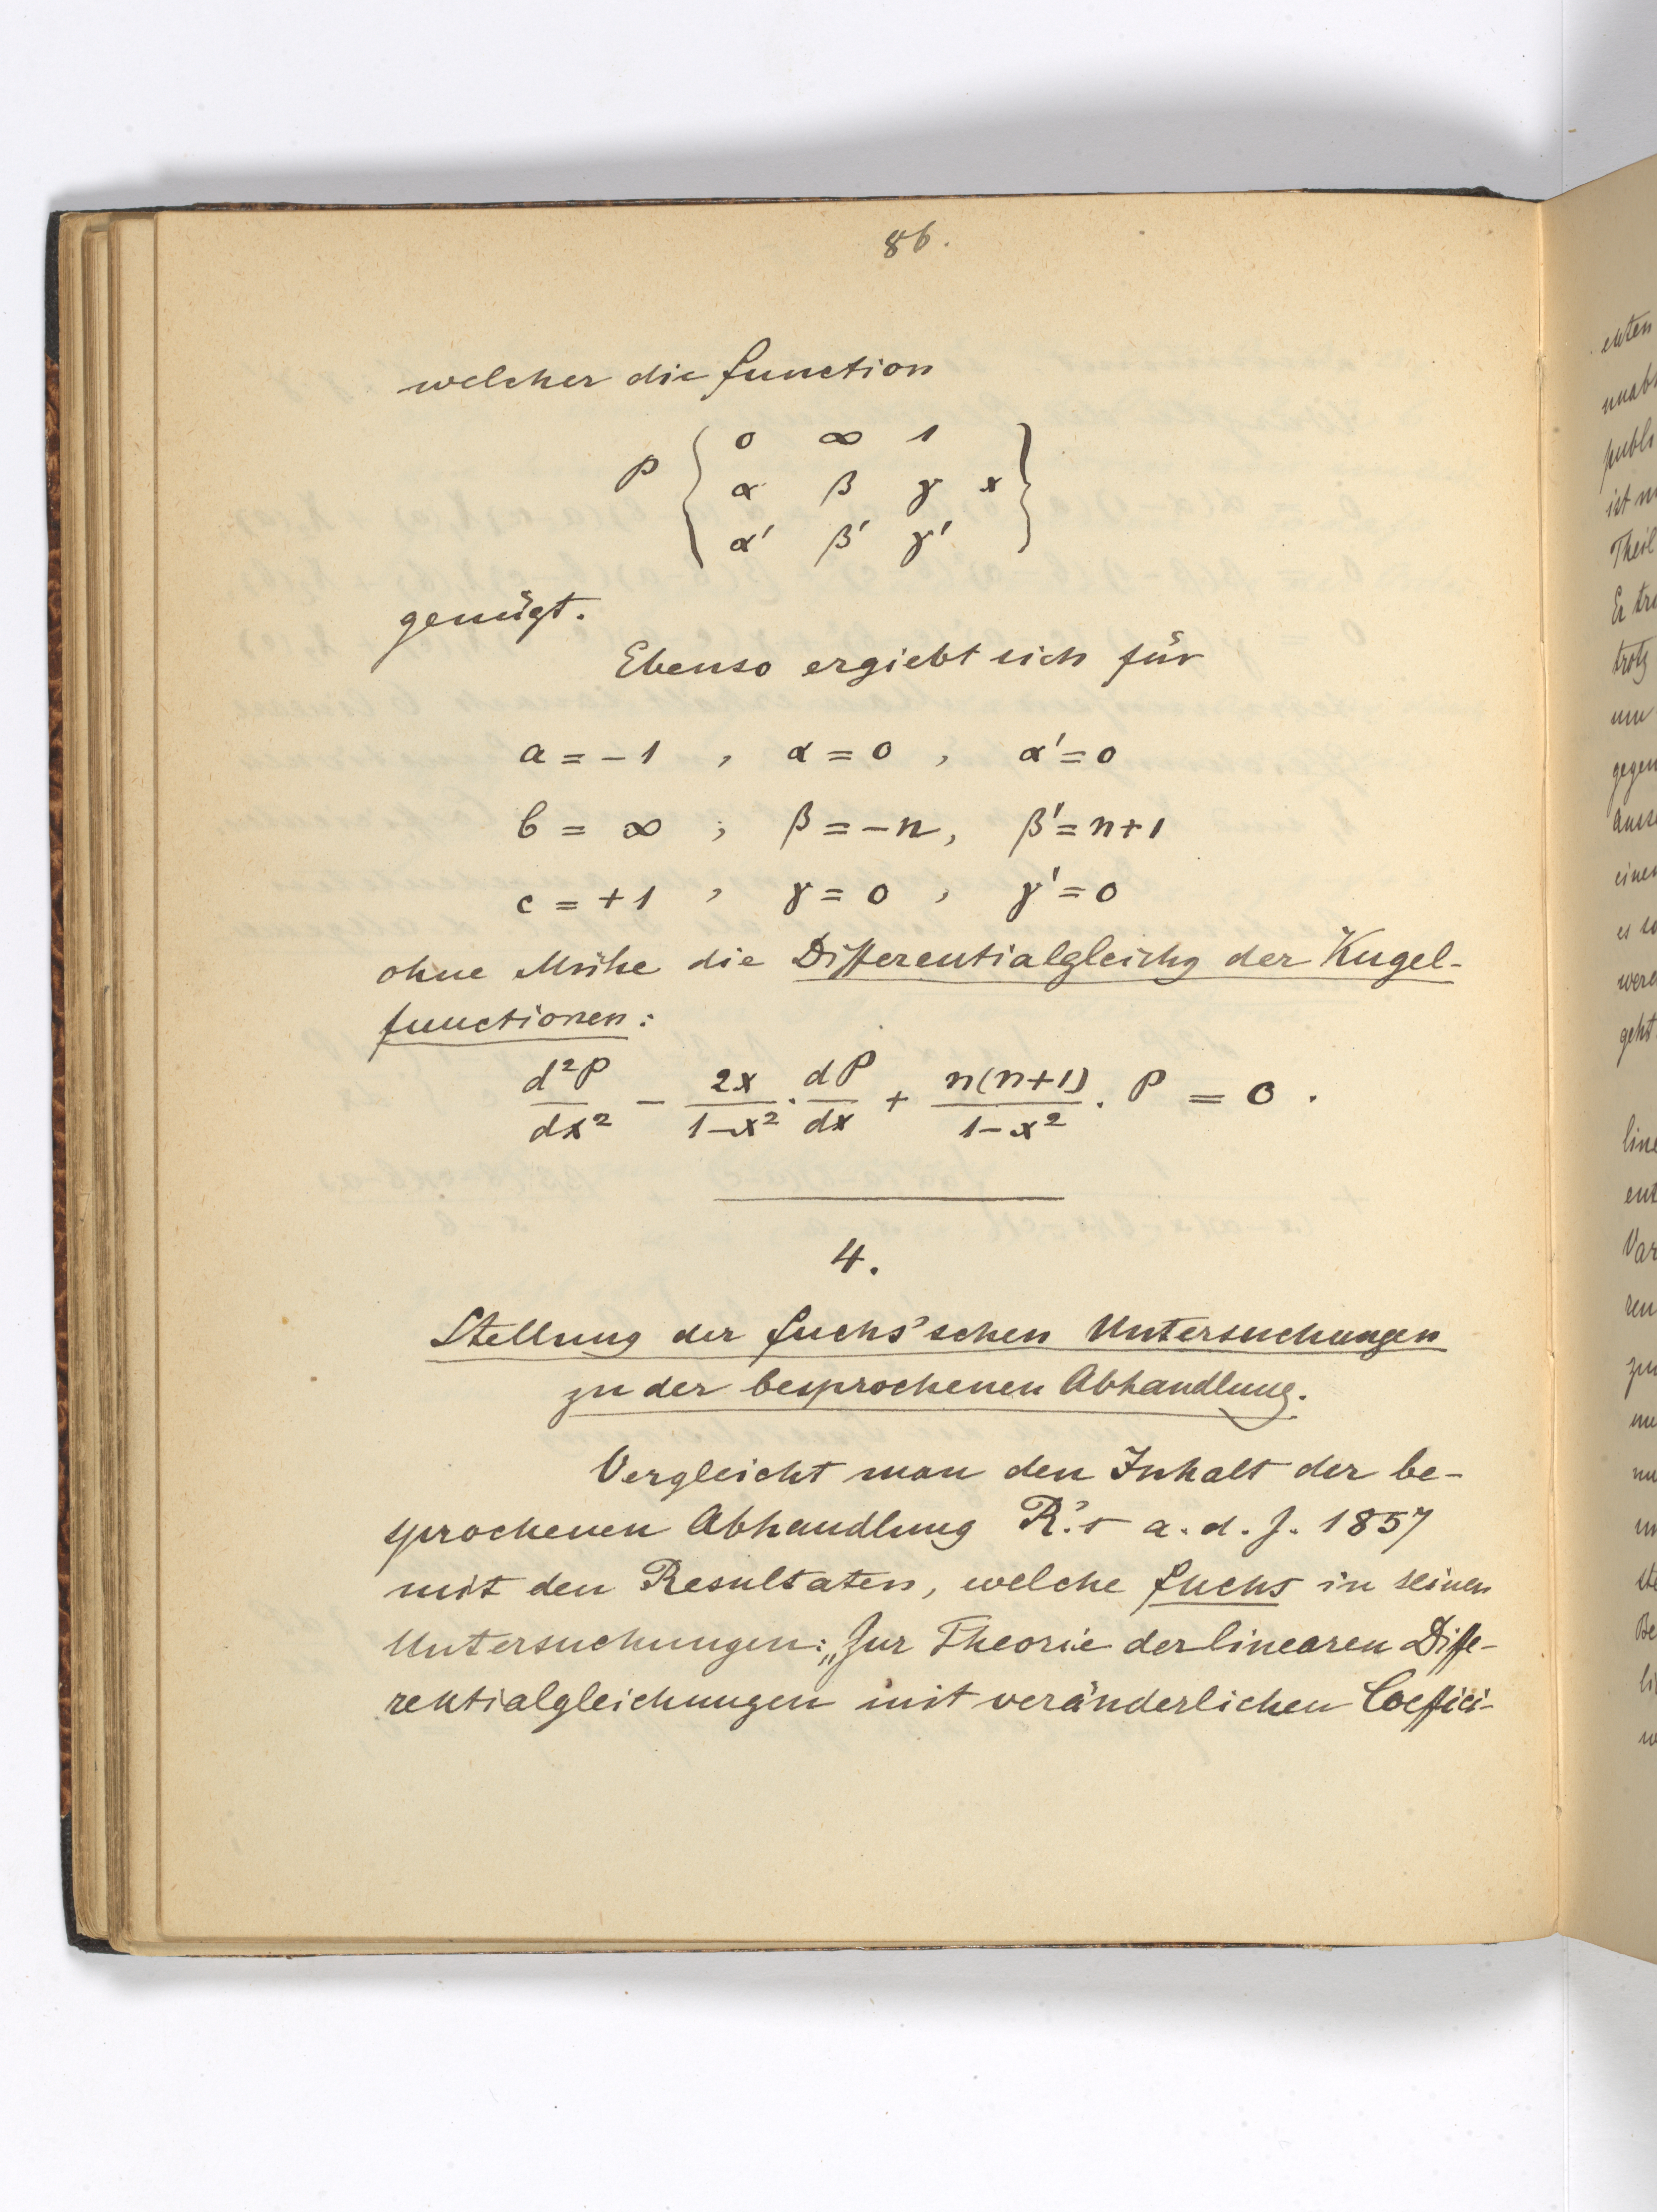 86.
welcher die Function
P { 0 ∞ 1
α β γ x
α' β' γ' }
genügt.
Ebenso ergiebt sich für
a = -1 , α = 0 , α' = 0
b = ∞ , β = -n, β' = n+1
c = +1 , γ = 0 , γ' = 0
ohne Mühe die Differentialgleichg der Kugel-
functionen:
d²P/dx² - 2x/1-x² · dP/dx + n(n+1)/1-x² · P = 0 .
4.
Stellung der Fuchs'schen Untersuchungen
zu der besprochenen Abhandlung.
Vergleicht man den Inhalt der be-
sprochenen Abhandlung R.'s a. d. J. 1857
mit den Resultaten, welche Fuchs in seinen
Untersuchungen: „Zur Theorie der linearen Diffe-
rentialgleichungen mit veränderlichen Coeffici-